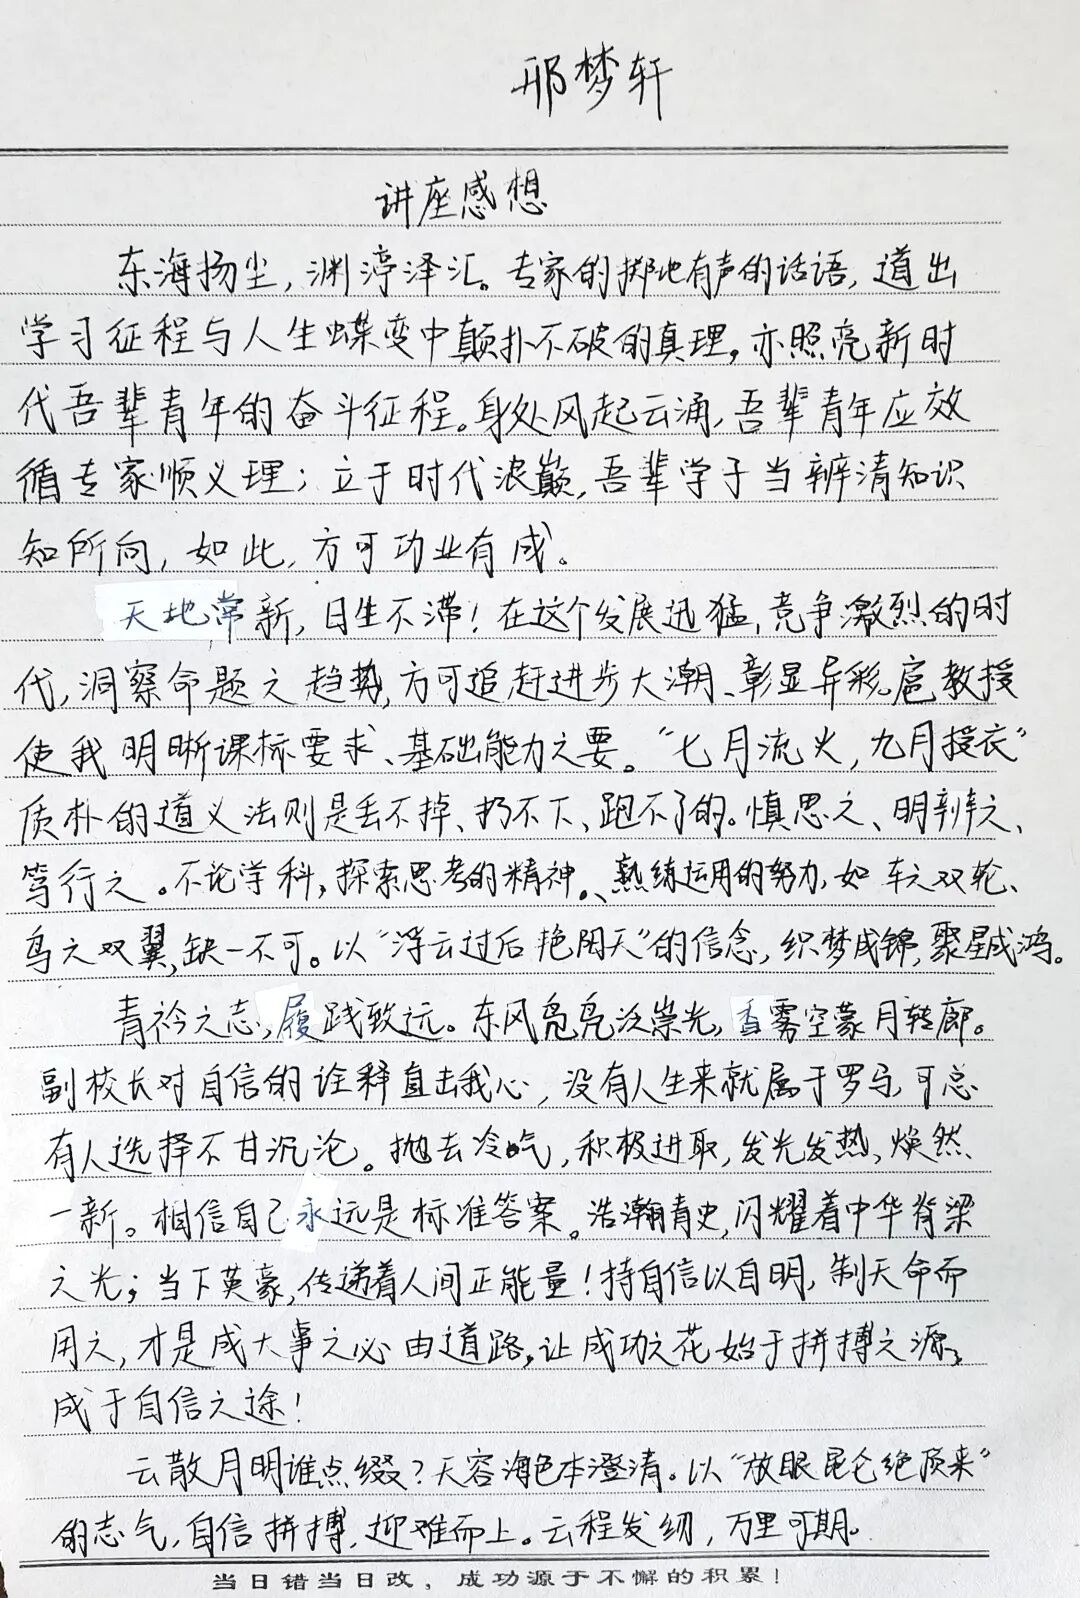 邢梦轩
讲座感想
东海扬尘,渊渟泽汇。专家的掷地有声的话语,道出
学习征程与人生蝶变中颠扑不破的真理,亦照亮新时
代吾辈青年的奋斗征程。身处风起云涌,吾辈青年应效
循专家顺义理;立于时代浪巅,吾辈学子当辨清知识
知所向,如此,方可功业有成。
天地常新,日生不滞!在这个发展迅猛,竞争激烈的时
代,洞察命题之趋势,方可追赶进步大潮、彰显异彩。扈教授
使我明晰课标要求、基础能力之要。“七月流火,九月授衣”
质朴的道义法则是丢不掉、扔不下、跑不了的。慎思之、明辨之、
笃行之。不论学科,探索思考的精神、熟练运用的努力,如车之双轮、
鸟之双翼,缺一不可。以“浮云过后艳阳天”的信念,织梦成锦,聚星成鸿。
青衿之志,履践致远。东风袅袅泛崇光,香雾空蒙月转廊。
副校长对自信的诠释直击我心,没有人生来就属于罗马,可总
有人选择不甘沉沦。抛去冷气,积极进取,发光发热,焕然
一新。相信自己永远是标准答案。浩瀚青史,闪耀着中华脊梁
之光;当下英豪,传递着人间正能量!持自信以自明,制天命而
用之,才是成大事之必由道路,让成功之花始于拼搏之源,
成于自信之途!
云散月明谁点缀?天容海色本澄清。以“放眼昆仑绝顶来”
的志气,自信拼搏,迎难而上。云程发轫,万里可期。
当日错当日改,成功源于不懈的积累!